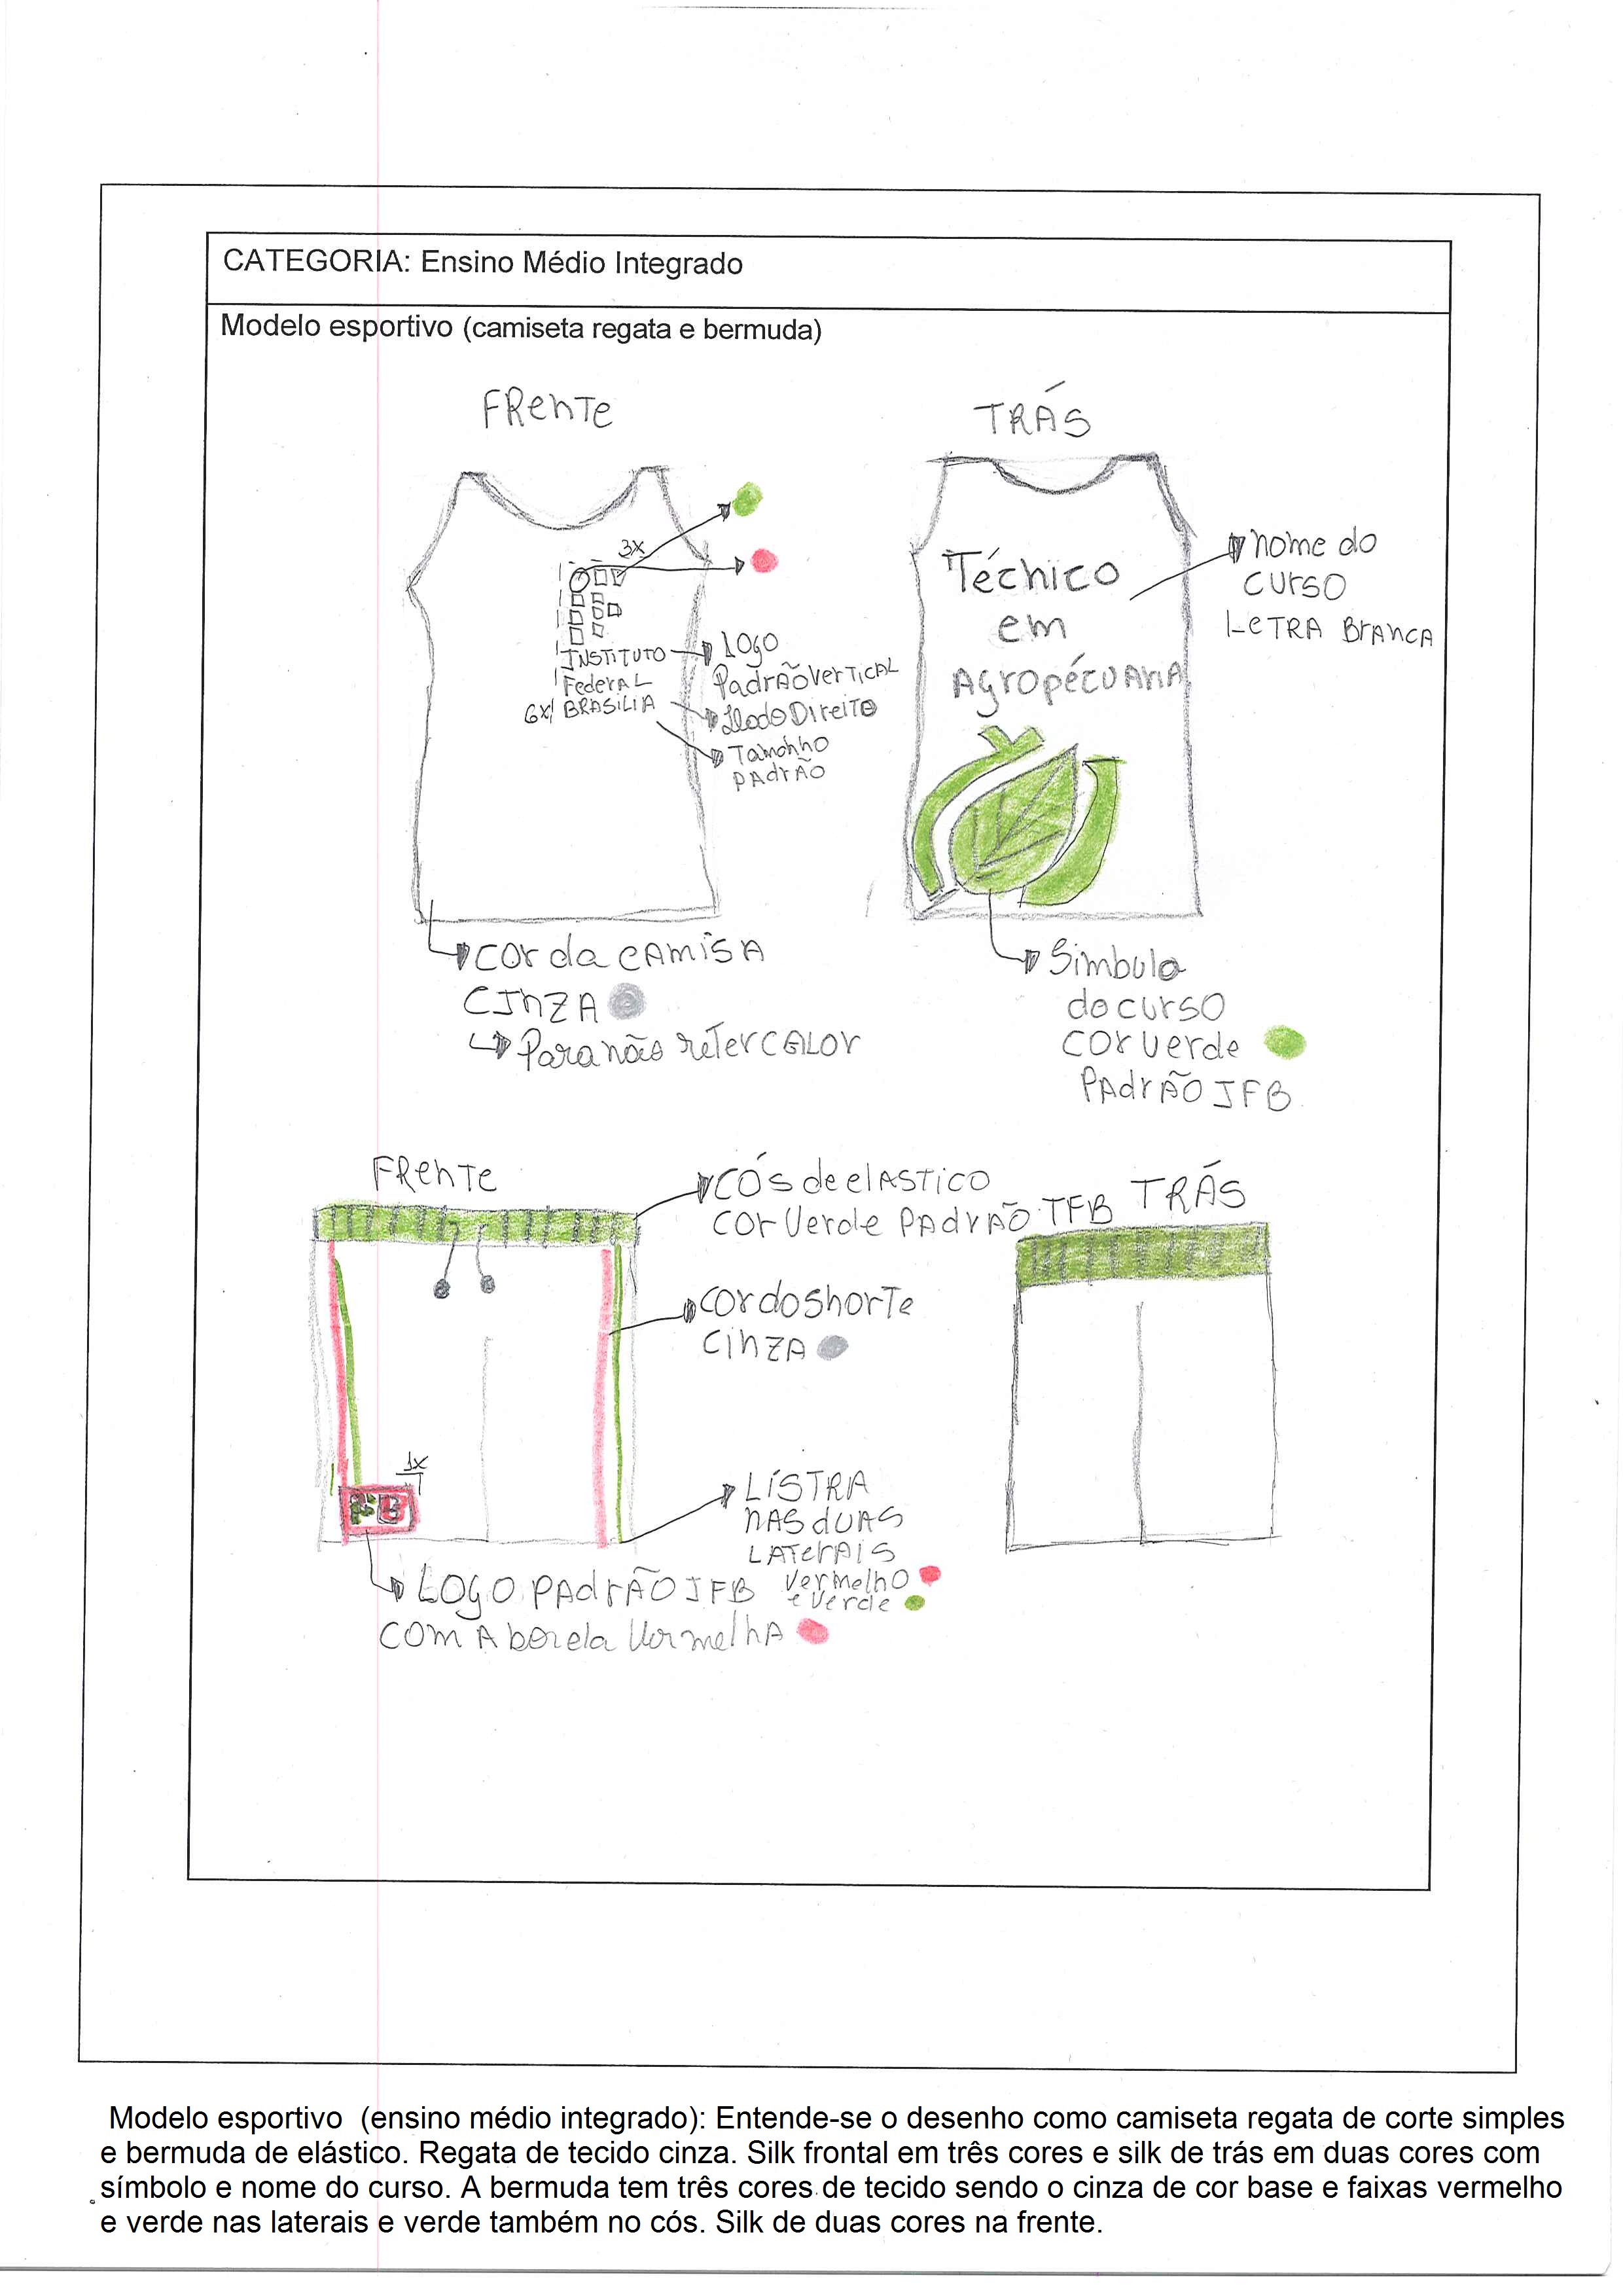 CATEGORIA: Ensino Médio Integrado
Modelo esportivo (camiseta regata e bermuda)
FRenTe
TRÁS
3x
INSTITUTO
FederAL
6x BRASILIA
LOGO
PadrÃO VerTICAL
Lado Direito
Tamanho
PAdrÃO
Téchico
em
Agropécuaria
nome do
curso
LeTRA BrAncA
COr da CAmisA
CINZA
Para não reTer CALOr
Simbulo
do curso
COr Verde
PAdrÃO IFB
FRenTe
CÓs de elASTICO
COr Verde PAdrÃO IFB
TRÁS
COr do ShorTe
CinZA
1x
LÍSTRA
nAS dUAS
LATerAIS
Vermelho
e Verde
B
LOGO PAdrÃO IFB
COm A borda VermelhA
Modelo esportivo (ensino médio integrado): Entende-se o desenho como camiseta regata de corte simples
e bermuda de elástico. Regata de tecido cinza. Silk frontal em três cores e silk de trás em duas cores com
símbolo e nome do curso. A bermuda tem três cores de tecido sendo o cinza de cor base e faixas vermelho
e verde nas laterais e verde também no cós. Silk de duas cores na frente.